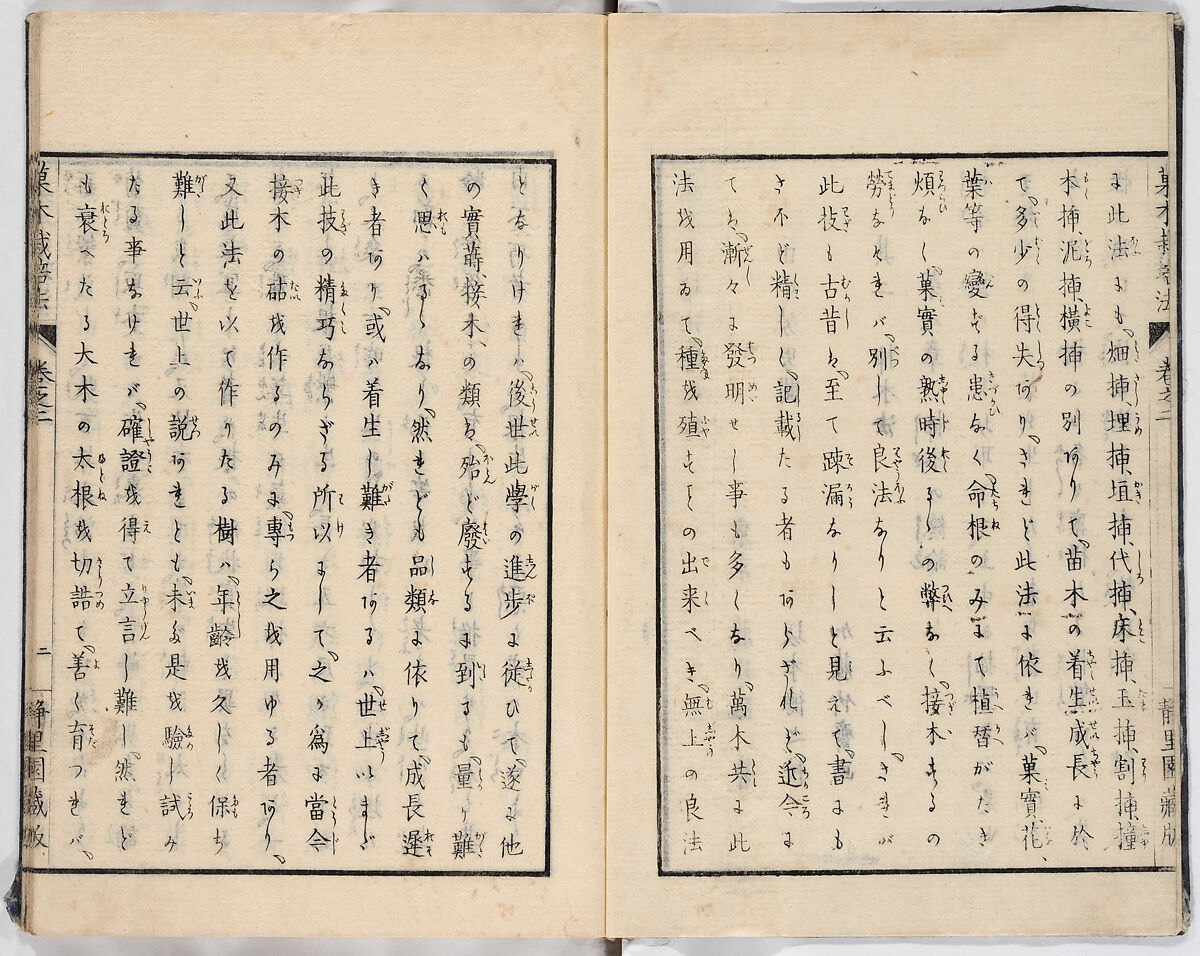 菓木栽培法　巻之二　靜里園藏版
に此法にも、畑挿、埋挿、垣挿、代挿、床挿、玉挿、割挿、撞
本挿、泥挿、横挿の別ありて、苗木の着生成長に於
て、多少の得失あり、されど此法に依れバ、菓實、花、
葉等の變ずる患なく、命根のみにて植替がたき
煩なく、菓實の熟時後るゝの弊なく、接木するの
勞なけれバ、別して良法なりと云ふべし、されが
此技も古昔は、至て踈漏なりしと見えて、書にも
さ不ど精しく記載たる者もあらざれど、近今に
てハ、漸々に發明せし事も多くなり、萬木共に此
法を用ゐて、種を殖すその出来べき、無上の良法
となりけれハ、後世此學の進歩に従ひて、遂に他
の實蒔、接木、の類は、殆ど廢するに到るも、量り難
く思ハるゝなり、然れども品類に依りて、成長遲
き者あり、或ハ着生し難き者あるハ、世上いまだ
此技の精巧ならざる所以にして、之が爲に當今
接木の砧を作るのみに、專ら之を用ゆる者あり、
又此法を以て作りたる樹ハ、年齡を久しく保ち
難しと云、世上の説あれとも、未だ是を驗し試み
たる事なけれバ、確證を得て立言し難し、然れど
も衰へたる大木の太根を切詰て、善く育つれバ、
菓木栽培法　巻之二　二　靜里園藏版